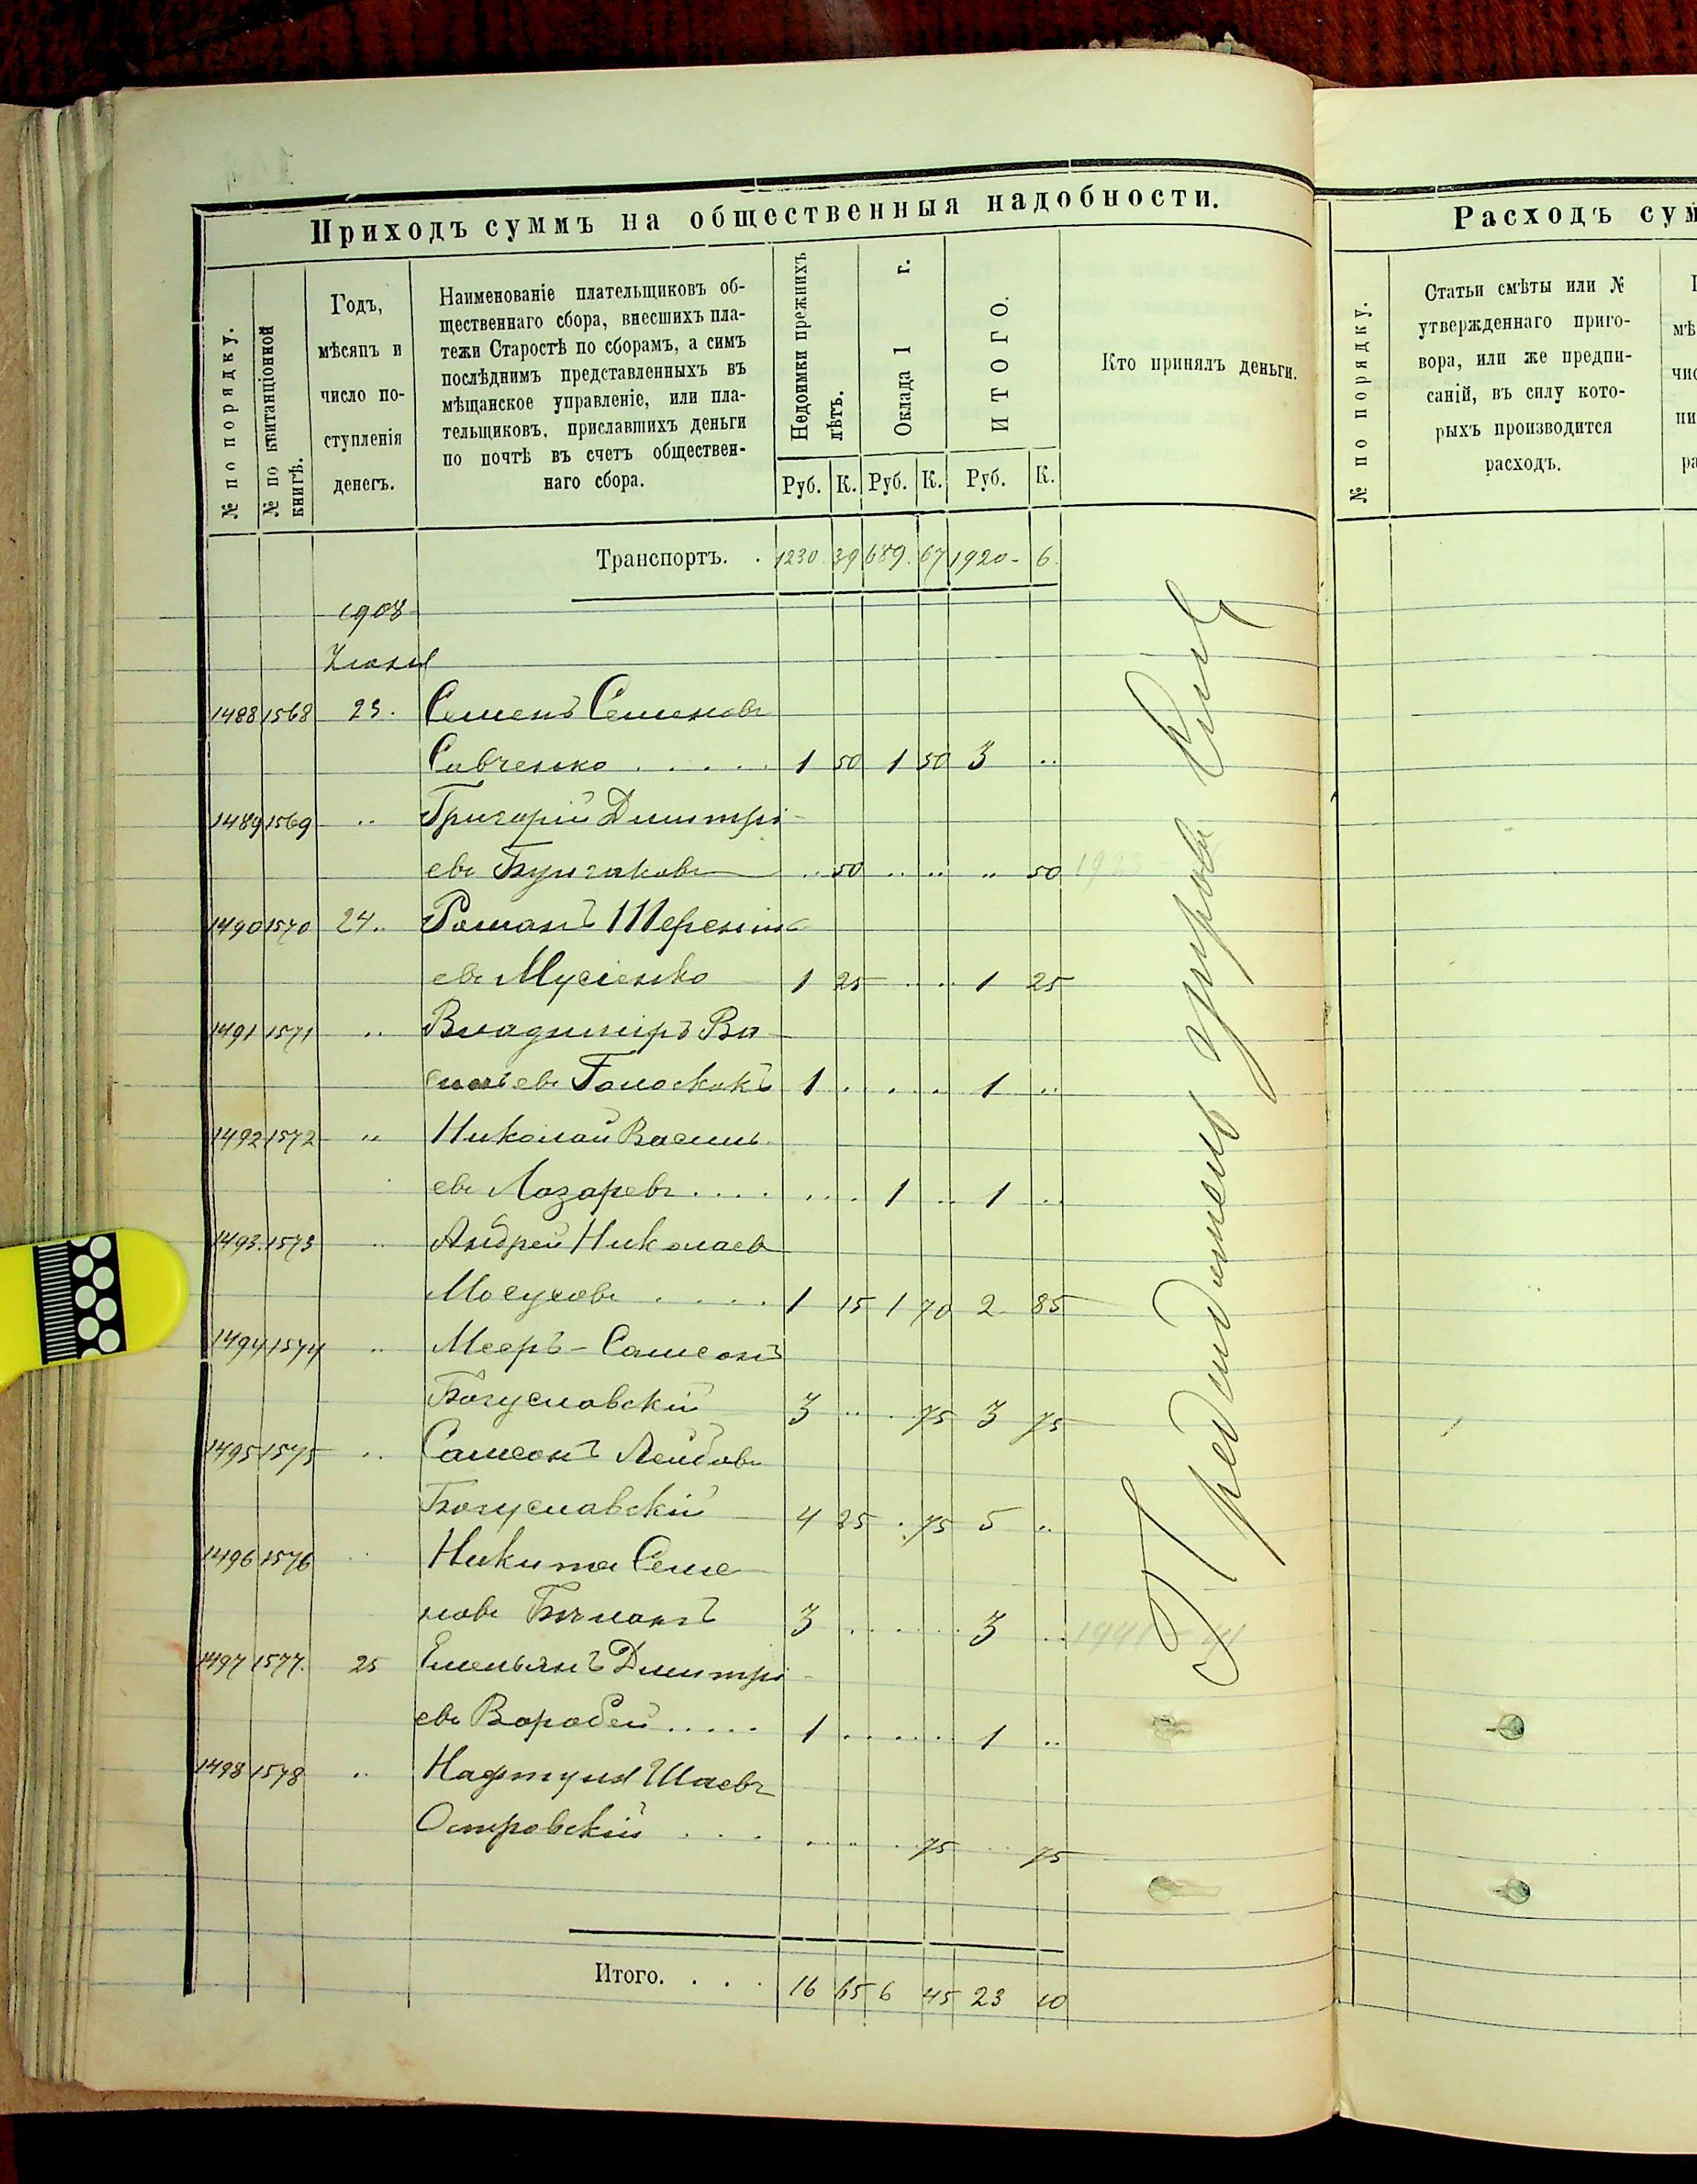 Приходъ суммъ на общественныя надобности.
№ по порядку.
№ по квитанціонной
книгѣ.
Годъ,
мѣсяцъ и
число по-
ступленія
денегъ.
Наименованіе плательщиковъ об-
щественнаго сбора, внесшихъ пла-
тежи Старостѣ по сборамъ, а симъ
послѣднимъ представленныхъ въ
мѣщанское управленіе, или пла-
тельщиковъ, приславшихъ деньги
по почтѣ въ счетъ обществен-
наго сбора.
Недоимки прежнихъ
лѣтъ.
Оклада 1 г.
ИТОГО.
Кто принялъ деньги.
Руб. К. Руб. К. Руб. К.
Транспортъ. . 1230 39 689. 67 1920 - 6.
1908
Іюля
1488 1568 23. Семенъ Семеновъ
Савченко . . . . . 1 50 1 50 3 ..
1489 1569 .. Григорій Дмитрі-
евъ Булгаковъ .. 50 .. .. .. 50
1490 1570 24.. Романъ Теренті-
евъ Мусіенко 1 25 .. .. 1 25
1491 1571 .. Владиміръ Ва-
сильевъ Голоскокъ 1 . . . . 1 ..
1492 1572 .. Николай Василь-
евъ Лазаревъ . . . . . . . 1 .. 1 ..
1493. 1573 .. Андрей Николаев
Мосуховъ . . . . 1 15 1 70 2 85
1494 1574 .. Мееръ-Самсонъ
Богуславскій 3 .. . 75 3 75
1495 1575 .. Самсонъ Лейбовъ
Богуславскій 4 25 . 75 5 ..
1496 1576 .. Никита Семе-
новъ 3 . . . . . 3 ..
1497 1577. 25 Емельянъ Дмитрі-
евъ Воробей . . . . . 1 . . . . . 1 ..
1498 1578 .. Нафтула Шаевъ
Островскій . . . . .. . 75 .. 75
Итого. . . . 16 65 6 45 23 10
Расходъ сум
№ по порядку.
Статьи смѣты или №
утвержденнаго приго-
вора, или же предпи-
саній, въ силу кото-
рыхъ производится
расходъ.